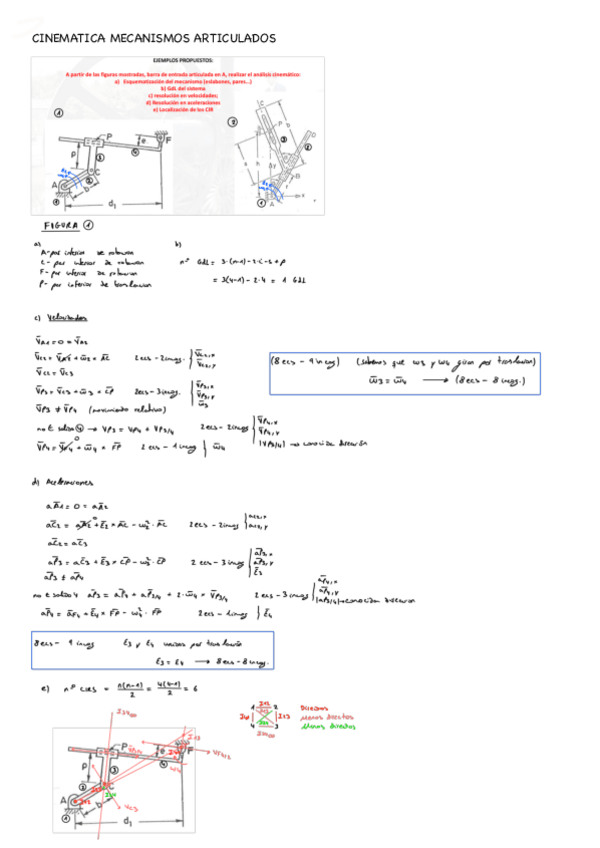 CINEMATICA MECANISMOS ARTICULADOS
EJEMPLOS PROPUESTOS:
A partir de las figuras mostradas, barra de entrada articulada en A, realizar el análisis cinemático:
a) Esquematización del mecanismo (eslabones, pares...)
b) Gdl. del sistema
c) resolución en velocidades.
d) Resolución en aceleraciones
e) Localización de los CIR
FIGURA ①
a)
A- par inferior de rotación
C- par inferior de rotación
F- par inferior de rotación
P- par inferior de translación
b)
nº Gdl = 3·(n-1)-2·i-s+p
= 3(4-1)-2·4 = 1 Gdl
c) Velocidades
VA1 = 0 = VA2
VC2 = VA2 + ω2 × AC 2 ecs - 2 incog. VC2,x VC2,y
VC2 = VC3
VP3 = VC3 + ω3 × CP 2 ecs - 3 incog. VP3,x VP3,y ω3
VP3 ≠ VP4 (movimiento relativo)
no E solido ④ → VP3 = VP4 + VP3/4 2 ecs - 2 incog VP4,x VP4,y |VP3/4| → conocida dirección
VP4 = VF4 + ω4 × FP 2 ecs - 1 incog ω4
(8 ecs - 9 incog) (sabemos que ω3 y ω4 giran por translacion)
ω3 = ω4 → (8 ecs - 8 incog.)
d) Aceleraciones
aA1 = 0 = aA2
aC2 = aA2 + E2 × AC - ω2² · AC 2 ecs - 2 incog aC2,x aC2,y
aC2 = aC3
aP3 = aC3 + E3 × CP - ω3² · CP 2 ecs - 3 incog aP3,x aP3,y E3
aP3 ≠ aP4
no E solido 4 aP3 = aP4 + aP3/4 + 2·ω4 × VP3/4 2 ecs - 3 incog aP4,x aP4,y |aP3/4| → conocida direccion
aP4 = aF4 + E4 × FP - ω4² · FP 2 ecs - 1 incog E4
8 ecs - 9 incog E3 y E4 unidas por translación
E3 = E4 → 8 ecs - 8 incog.
e) nº CIRS = n(n-1)/2 = 4(4-1)/2 = 6
Directos
Menos directos
Menos directos